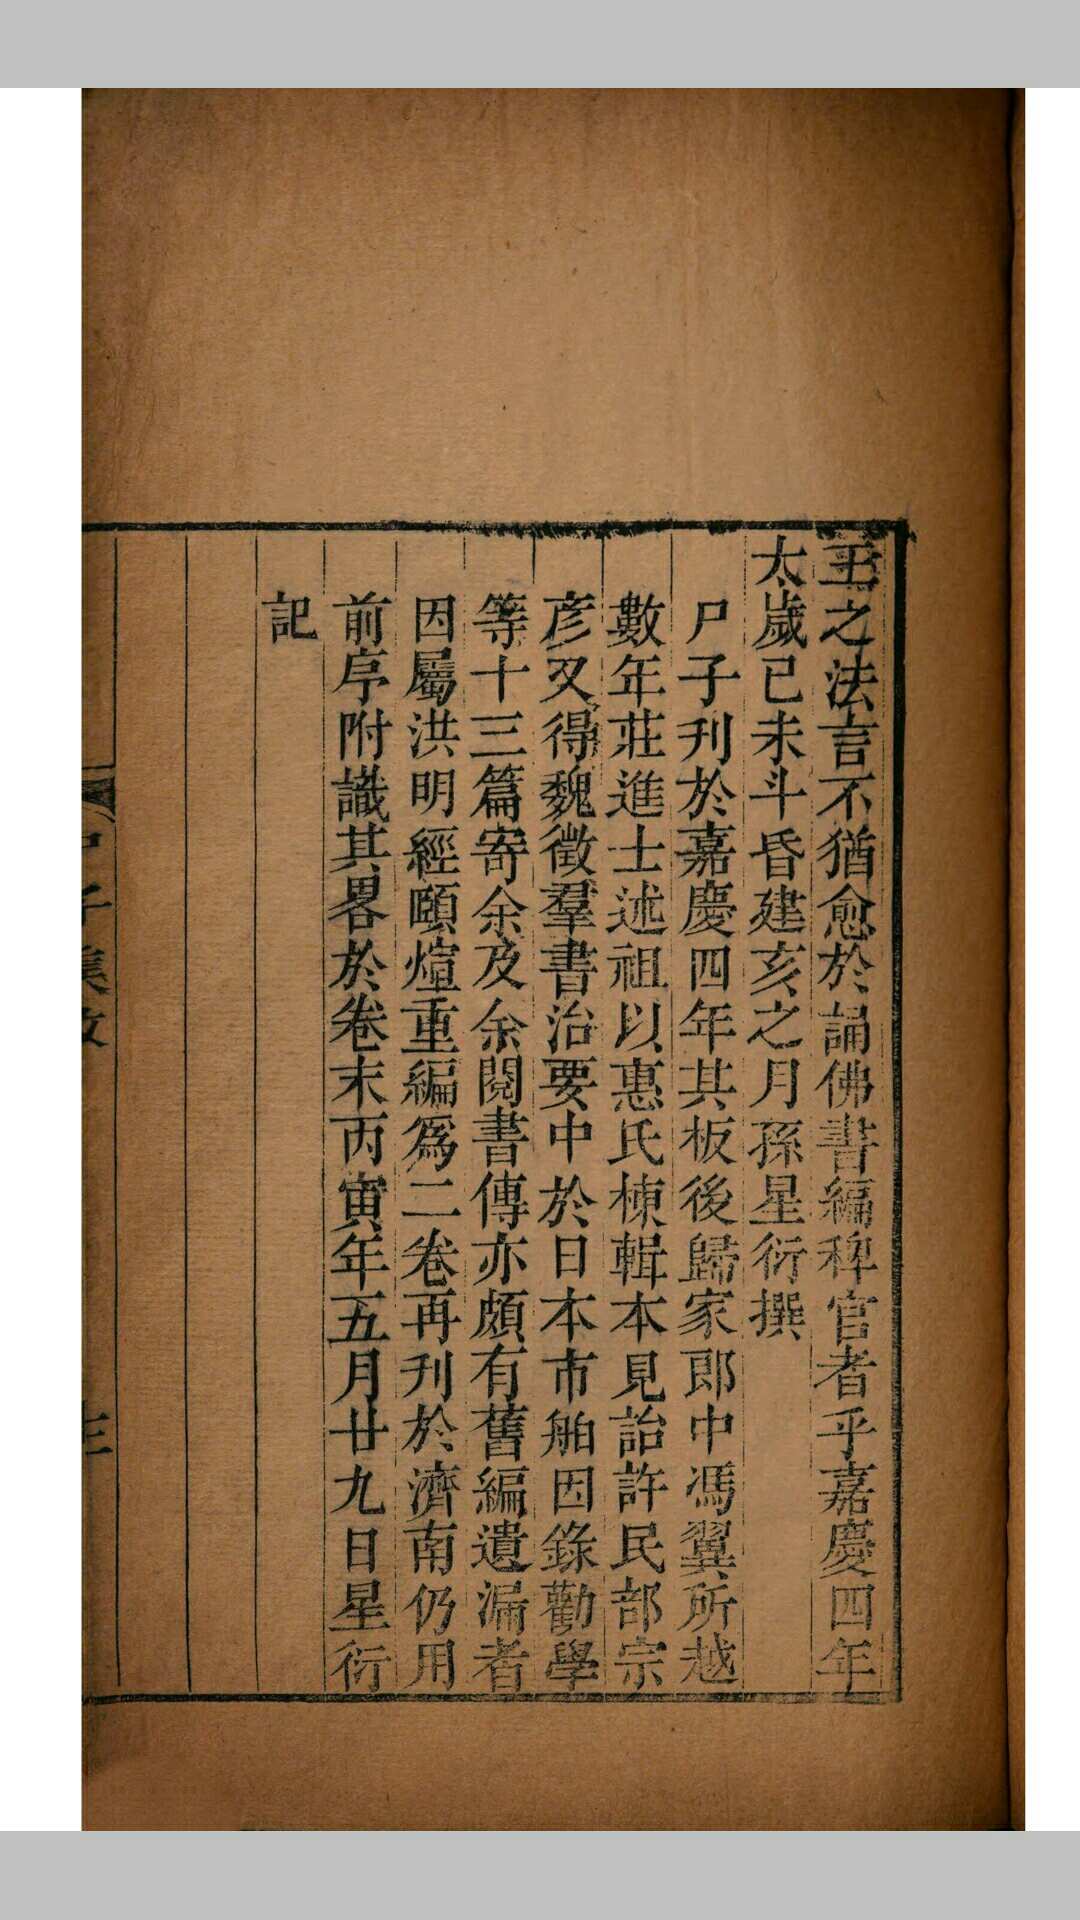 王之法言不猶愈於誦佛書編稗官者乎嘉慶四年
太歲已未斗昏建亥之月孫星衍撰
尸子刊於嘉慶四年其板後歸家郎中馮翼所越
數年莊進士述祖以惠氏棟輯本見詒許民部宗
彥又得魏徵羣書治要中於日本市舶因錄勸學
等十三篇寄余及余閱書傳亦頗有舊編遺漏者
因屬洪明經頤煊重編爲二卷再刊於濟南仍用
前序附識其畧於卷末丙寅年五月廿九日星衍
記